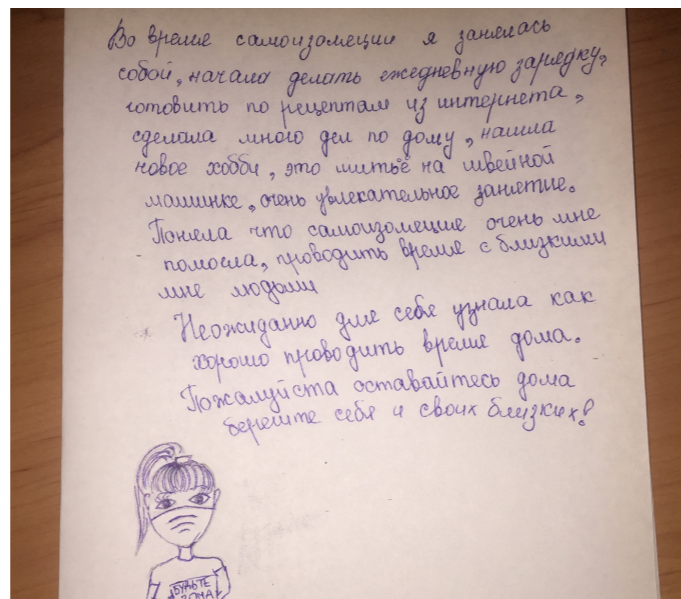 Во время самоизоляции я занялась
собой, начала делать ежедневную зарядку,
готовить по рецептам из интернета,
сделала много дел по дому, нашла
новое хобби, это шитьё на швейной
машинке, очень увлекательное занятие.
Поняла что самоизоляция очень мне
помогла, проводить время с близкими
мне людьми
Неожиданно для себя узнала как
хорошо проводить время дома.
Пожалуйста оставайтесь дома
берегите себя и своих близких!
БУДЬТЕ
ДОМА